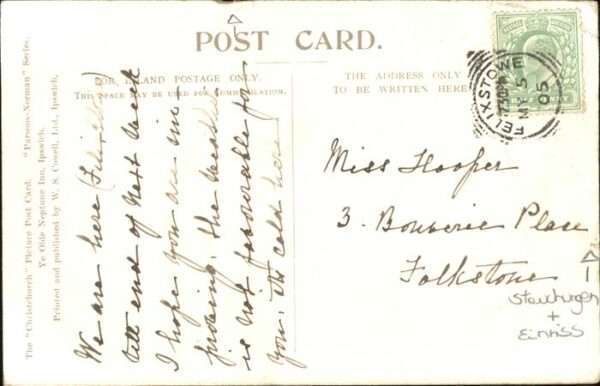 POST CARD.
FOR INLAND POSTAGE ONLY.
THIS SPACE MAY BE USED FOR COMMUNICATION.
THE ADDRESS ONLY
TO BE WRITTEN HERE
The "Christchurch" Picture Post Card. "Parsons-Norman" Series.
Ye Olde Neptune Inn, Ipswich.
Printed and published by W. S. Cowell, Ltd., Ipswich.
We are here (Felixstowe)
till end of next week
I hope you are im-
proving. The weather
is not favourable for
you. Too cold here
FELIXSTOWE
MY 5
05
Miss Hooper
3. Bouverie Place
Folkstone
+